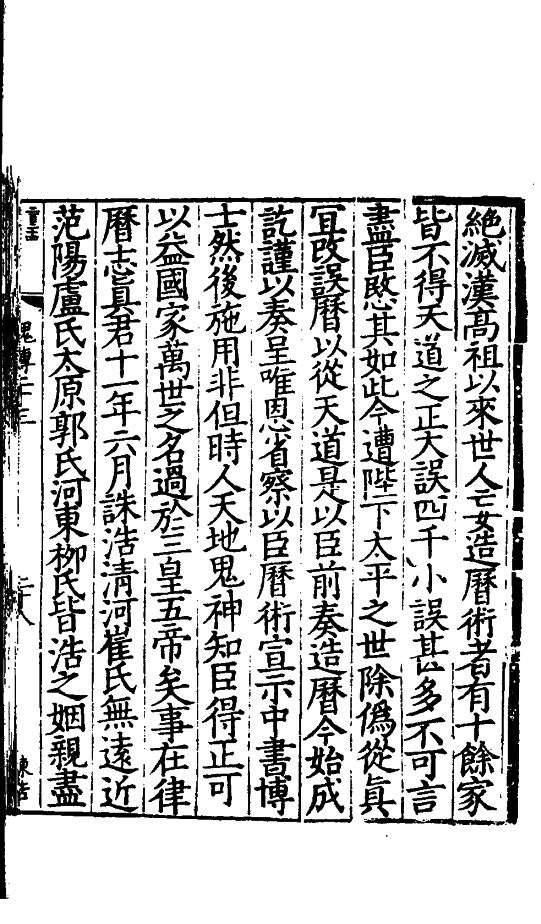 絶滅漢高祖以來世人妄造曆術者有十餘家
皆不得天道之正大誤四千小誤甚多不可言
盡臣愍其如此今遭陛下太平之世除僞從眞
宜改誤曆以從天道是以臣前奏造曆今始成
訖謹以奏呈唯恩省察以臣曆術宣示中書博
士然後施用非但時人天地鬼神知臣得正可
以益國家萬世之名過於三皇五帝矣事在律
曆志眞君十一年六月誅浩清河崔氏無遠近
范陽盧氏太原郭氏河東栁氏皆浩之姻親盡